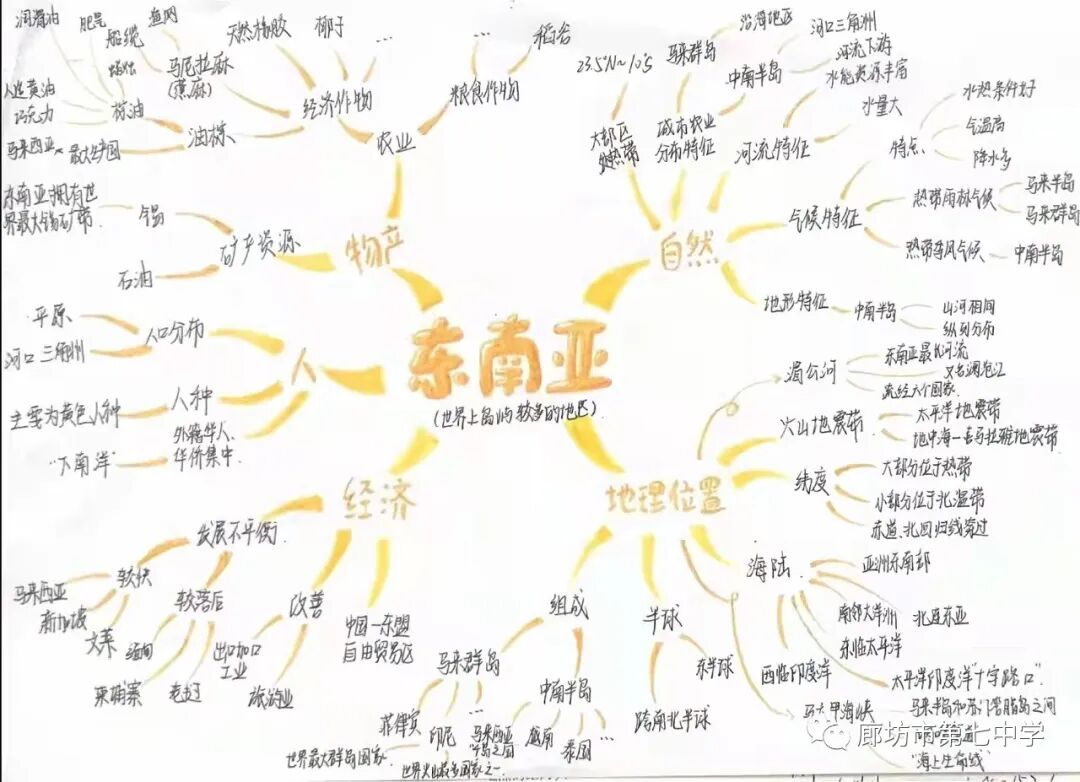 东南亚
(世界上岛屿较多的地区)
物产
农业
经济作物
天然橡胶
椰子
…
马尼拉麻
(蕉麻)
渔网
船缆
油棕
棕油
润滑油
肥皂
蜡烛
人造黄油
巧克力
最大生产国
马来西亚
粮食作物
…
稻谷
矿产资源
锡
东南亚拥有世
界最大锡矿带
石油
人
人口分布
平原
河口三角洲
人种
主要为黄色人种
外籍华人、
华侨集中
"下南洋"
经济
发展不平衡
较快
马来西亚
新加坡
文莱
较落后
缅甸
柬埔寨
老挝
改善
出口加工
工业
旅游业
中国—东盟
自由贸易区
自然
大部区
处热带
23.5°N~10°S
城市农业
分布特征
马来群岛
沿海地区
中南半岛
河口三角洲
河流下游
河流特征
水能资源丰富
水量大
气候特征
特点
水热条件好
气温高
降水多
热带雨林气候
马来半岛
马来群岛
热带季风气候
中南半岛
地形特征
中南半岛
山河相间
纵列分布
地理位置
湄公河
东南亚最长河流
又名澜沧江
流经六个国家
火山地震带
太平洋地震带
地中海—喜马拉雅地震带
纬度
大部分位于热带
小部分位于北温带
赤道、北回归线穿过
海陆
亚洲东南部
南邻大洋洲
北连东亚
东临太平洋
西临印度洋
太平洋印度洋"十字路口"
马六甲海峡
"海上生命线"
半球
东半球
跨南北半球
组成
马来群岛
菲律宾
印尼
世界最大群岛国家
世界火山最多国家之一
…
中南半岛
越南
泰国
…
廊坊市第七中学